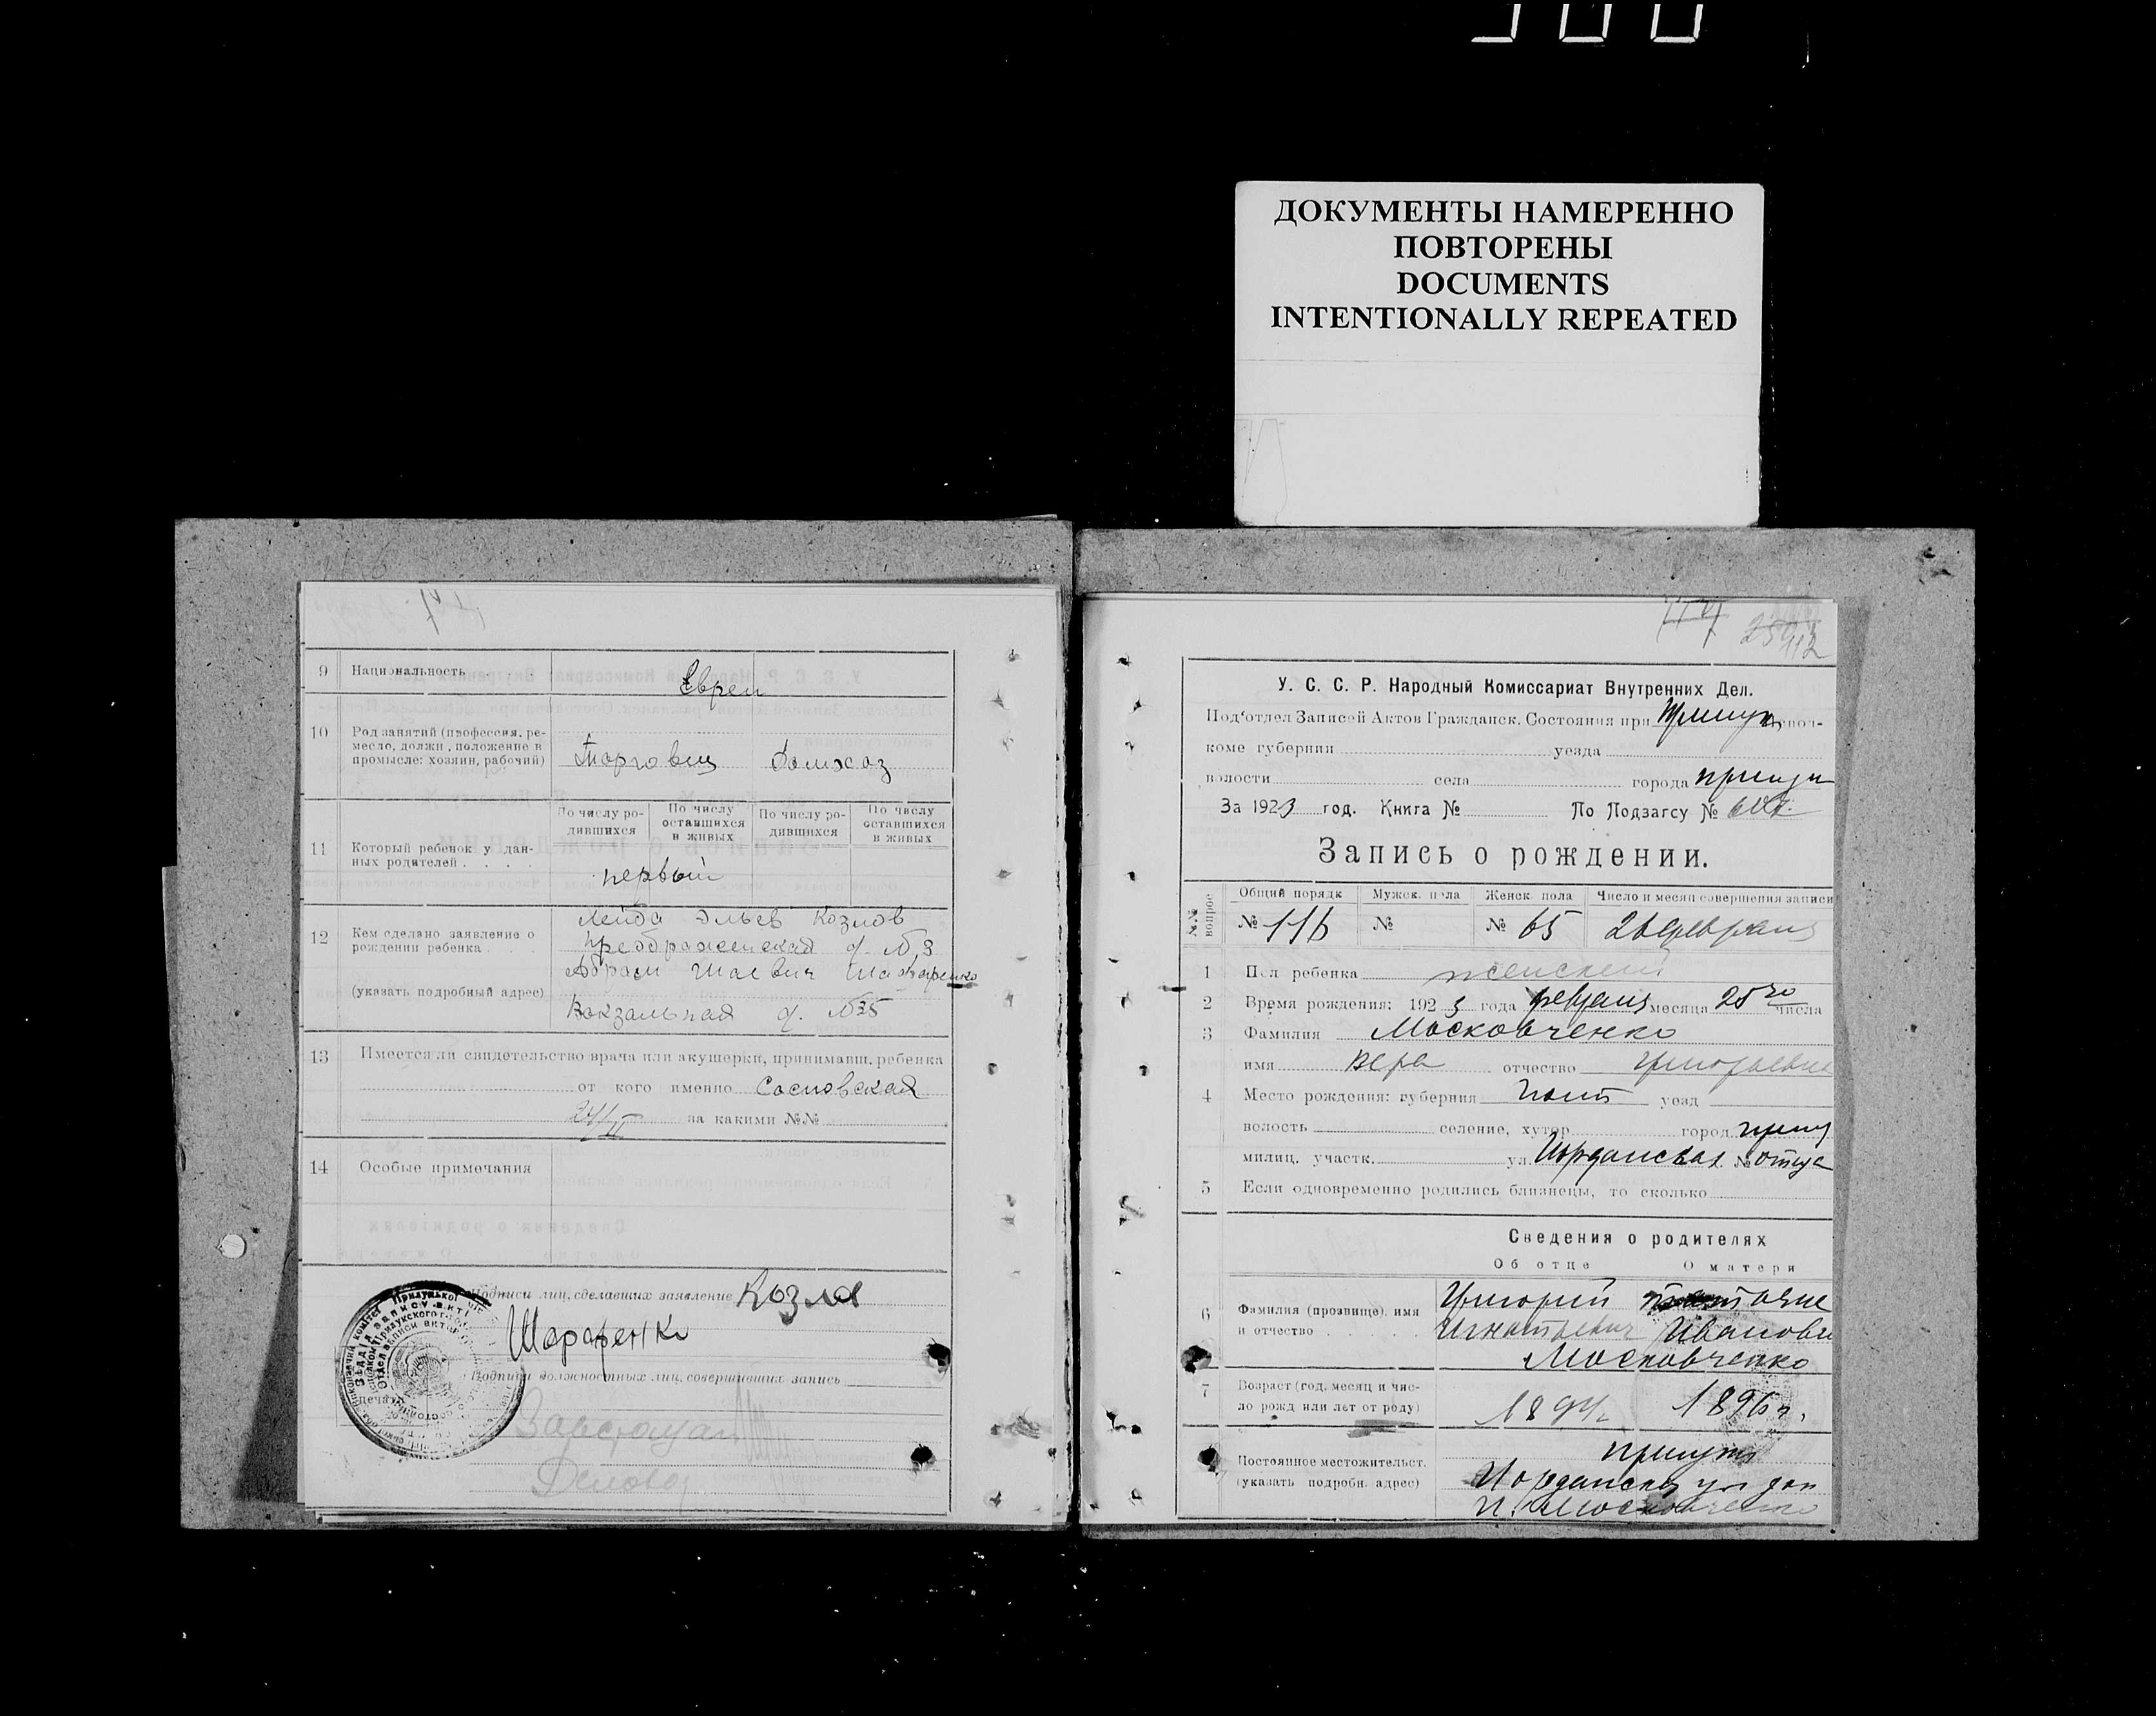 ДОКУМЕНТЫ НАМЕРЕННО
ПОВТОРЕНЫ
DOCUMENTS
INTENTIONALLY REPEATED
9 Национальность Евреи
10 Род занятий (профессия, ре-
месло, должн., положение в
промысле: хозяин, рабочий) Торговец Домхоз
По числу ро-
дившихся
По числу
оставшихся
в живых
По числу ро-
дившихся
По числу
оставшихся
в живых
11 Который ребенок у дан-
ных родителей . . . . первый
12 Кем сделано заявление о
рождении ребенка
(указать подробный адрес)
Лейба Эльев Козлов
Преображенская д. № 3
Абрам Шаевич Шафаренко
Вокзальная д. № 35
13 Имеется ли свидетельство врача или акушерки, принимавш. ребенка
от кого именно Сосновская
24/II за какими №№
14 Особые примечания
Подписи лиц, сделавших заявление Козлов
Шафаренко
Подписи должностных лиц, совершивших запись
печать
117
У. С. С. Р. Народный Комиссариат Внутренних Дел.
Подотдел Записей Актов Гражданск. Состояния при Прилук. испол-
коме губернии уезда
волости села города Прилуки
За 1923 год. Книга № По Подзагсу №
Запись о рождении.
№№ вопрос.
Общий порядк Мужск. пола Женск. пола Число и месяц совершения записи
№ 116 № № 65 26 февраля
1 Пол ребенка женский
2 Время рождения: 1923 года февраля месяца 25го числа
3 Фамилия Московченко
имя Вера отчество Григорьевна
4 Место рождения: губерния Полт уезд
волость селение, хутор город Прилу
милиц. участк. ул. Иорданская № отца
5 Если одновременно родились близнецы, то сколько
Сведения о родителях
Об отце О матери
6 Фамилия (прозвище), имя
и отчество . . . . .
Григорий
Игнатьевич Иванови
Московченко
7 Возраст (год, месяц и чис-
ло рожд. или лет от роду) 1894 г. 1896 г.
Постоянное местожительст.
(указать подробн. адрес)
Прилуки
Иорданская ул дом
И. Московченко